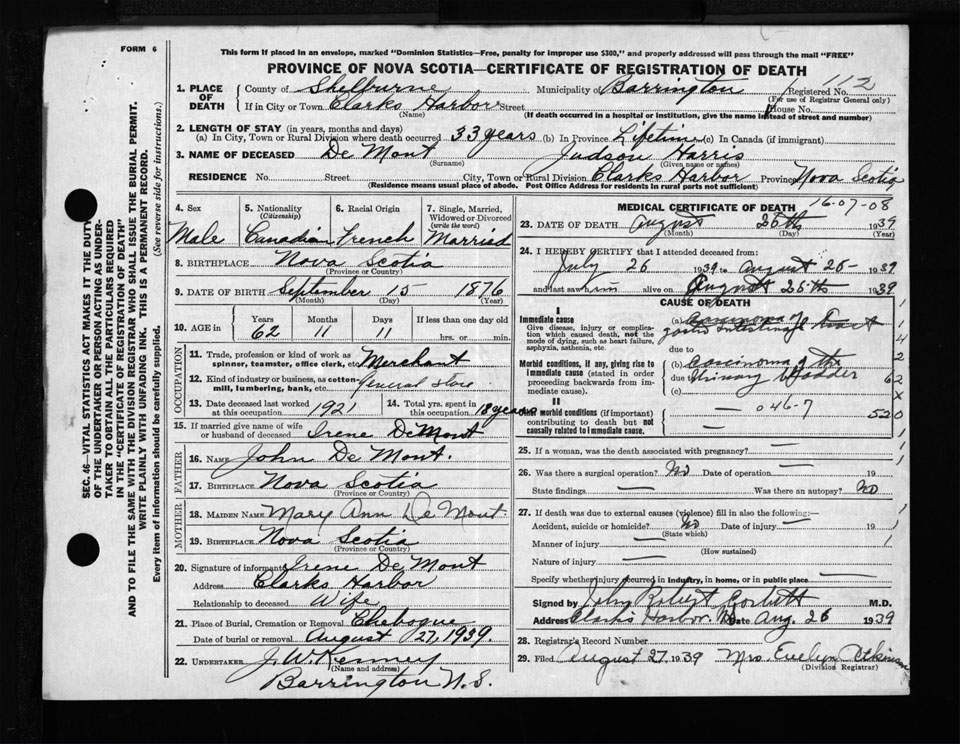 FORM 6
This form if placed in an envelope, marked "Dominion Statistics—Free, penalty for improper use $300," and properly addressed will pass through the mail "FREE"
PROVINCE OF NOVA SCOTIA—CERTIFICATE OF REGISTRATION OF DEATH
SEC. 46—VITAL STATISTICS ACT MAKES IT THE DUTY
OF THE UNDERTAKER OR PERSON ACTING AS UNDER-
TAKER TO OBTAIN ALL THE PARTICULARS REQUIRED
IN THE "CERTIFICATE OF REGISTRATION OF DEATH"
AND TO FILE THE SAME WITH THE DIVISION REGISTRAR WHO SHALL ISSUE THE BURIAL PERMIT.
WRITE PLAINLY WITH UNFADING INK. THIS IS A PERMANENT RECORD.
Every item of information should be carefully supplied. (See reverse side for instructions.)
1. PLACE OF DEATH
County of Shelburne Municipality of Barrington Registered No. 112
(For use of Registrar General only)
If in City or Town Clarks Harbor Street House No.
(Name) (If death occurred in a hospital or institution, give the name instead of street and number)
2. LENGTH OF STAY (in years, months and days)
(a) In City, Town or Rural Division where death occurred 33 years (b) In Province Lifetime (c) In Canada (if immigrant)
3. NAME OF DECEASED De Mont Judson Harris
(Surname) (Given name or names)
RESIDENCE No. Street City, Town or Rural Division Clarks Harbor Province Nova Scotia
(Residence means usual place of abode. Post Office Address for residents in rural parts not sufficient)
4. Sex 5. Nationality (Citizenship) 6. Racial Origin 7. Single, Married, Widowed or Divorced (write the word)
Male Canadian French Married
8. BIRTHPLACE Nova Scotia
(Province or Country)
9. DATE OF BIRTH September 15 1876
(Month) (Day) (Year)
10. AGE in Years Months Days If less than one day old
62 11 11 hrs. or min.
OCCUPATION
11. Trade, profession or kind of work as spinner, teamster, office clerk, etc. Merchant
12. Kind of industry or business, as cotton-mill, lumbering, bank, etc. General Store
13. Date deceased last worked at this occupation 1921 14. Total yrs. spent in this occupation 18 years
15. If married give name of wife or husband of deceased Irene DeMont
FATHER
16. NAME John De Mont.
17. BIRTHPLACE Nova Scotia
(Province or Country)
MOTHER
18. MAIDEN NAME Mary Ann De Mont
19. BIRTHPLACE Nova Scotia
(Province or Country)
20. Signature of informant Irene De Mont
Address Clarks Harbor
Relationship to deceased Wife
21. Place of Burial, Cremation or Removal Chebogue
Date of burial or removal August 27, 1939.
22. UNDERTAKER J. W. Kenney
(Name and address)
Barrington N. S.
MEDICAL CERTIFICATE OF DEATH
16-07-08
23. DATE OF DEATH August 26th 1939
(Month) (Day) (Year)
24. I HEREBY CERTIFY that I attended deceased from:
July 26 1939 to August 26 1939
and last saw him alive on August 26th 1939
CAUSE OF DEATH
I
Immediate cause
Give disease, injury or complication which caused death, not the mode of dying, such as heart failure, asphyxia, asthenia, etc.
(a) Carcinoma of
gastro intestinal tract
due to
Morbid conditions, if any, giving rise to immediate cause (stated in order proceeding backwards from immediate cause).
(b) Carcinoma of the
due Urinary Bladder
(c)
II
Other morbid conditions (if important) contributing to death but not causally related to immediate cause.
046-7
1
4
2
62
X
520
25. If a woman, was the death associated with pregnancy?
26. Was there a surgical operation? No Date of operation 19
State findings Was there an autopsy? No
27. If death was due to external causes (violence) fill in also the following:—
Accident, suicide or homicide? No Date of injury 19
(State which)
Manner of injury
(How sustained)
Nature of injury
Specify whether injury occurred in industry, in home, or in public place
Signed by John Robert Corbett M.D.
Address Clarks Harbor. N.S. Date Aug. 26 1939
28. Registrar's Record Number
29. Filed August 27 1939 Mrs. Evelyn Atkinson
(Division Registrar)